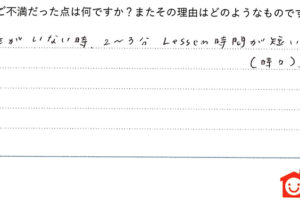 ご不満だった点は何ですか？またその理由はどのようなものです
がいない時、2～3分 Lessen時間が短い
(時々)